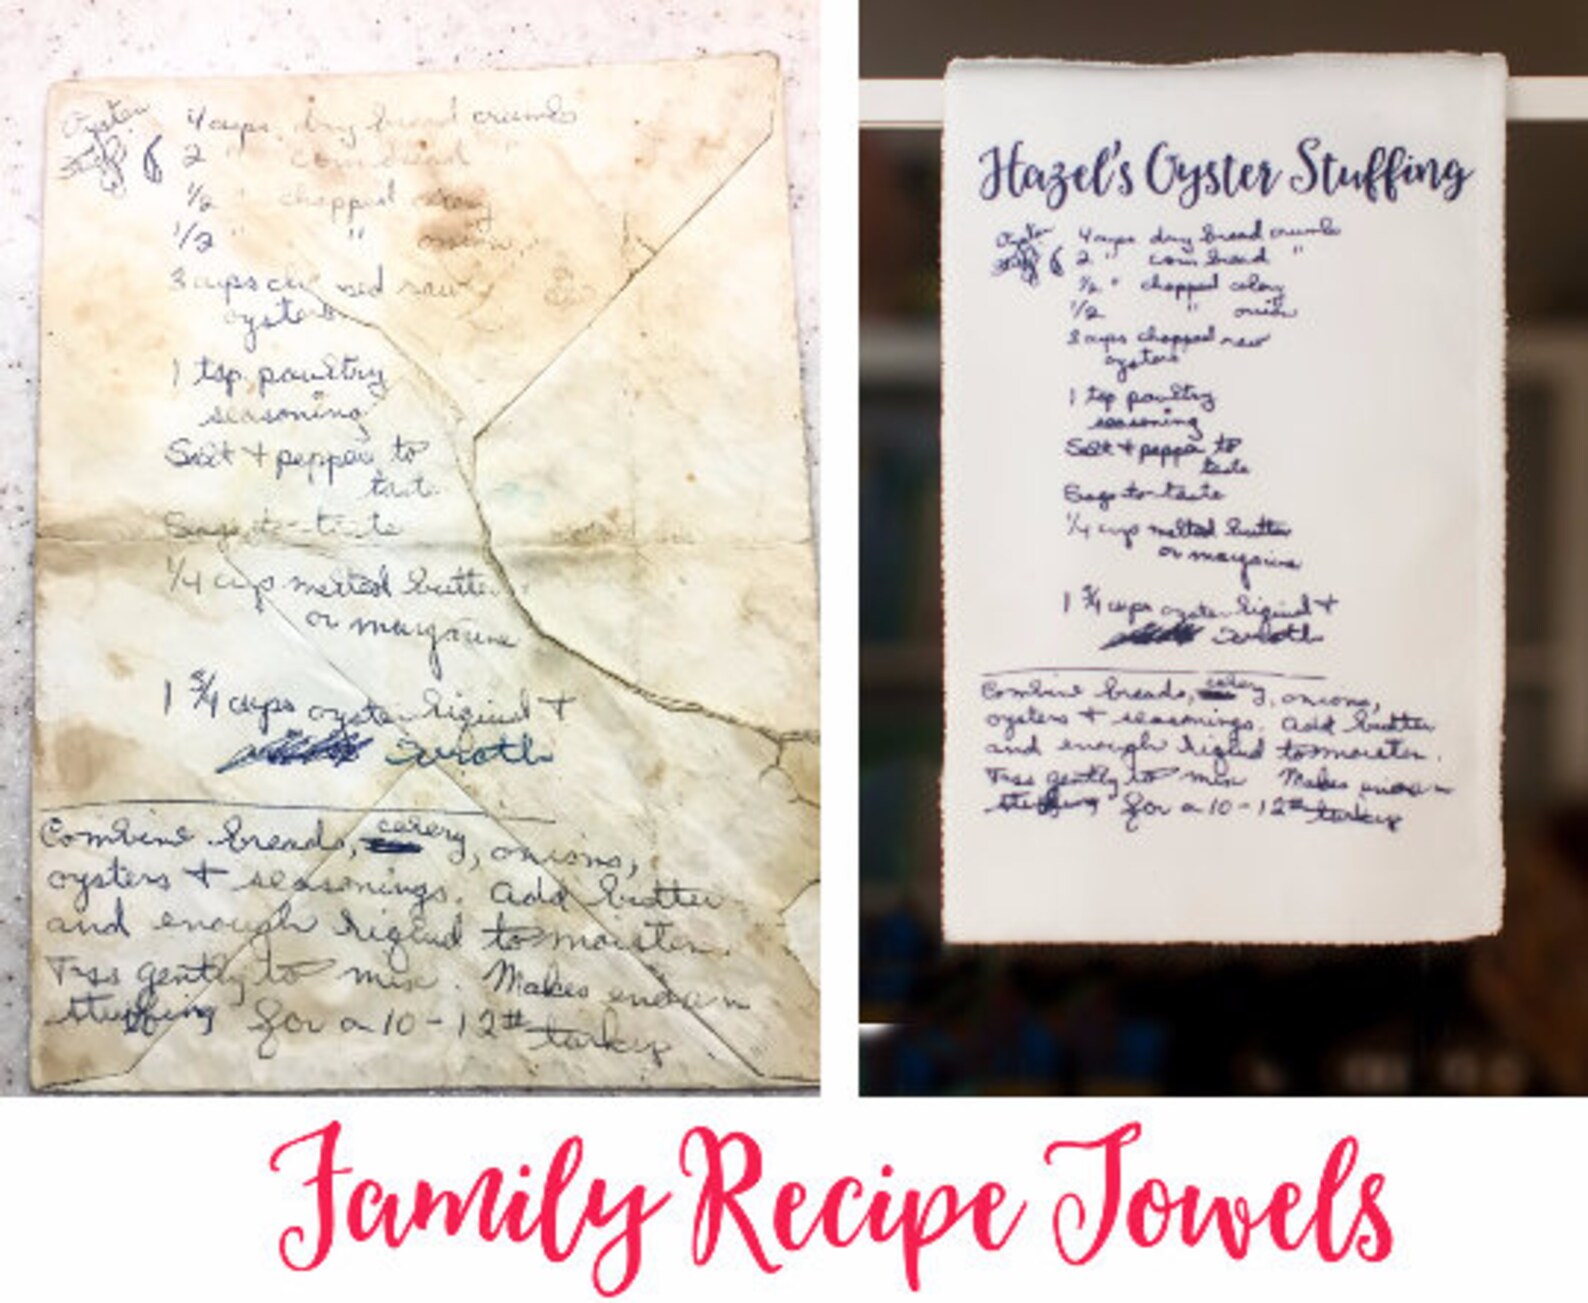 Oyster
Stuff
4 cups dry bread crumbs
2 " corn bread "
1/2 " chopped celery
1/2 " " onion
3 cups chopped raw
oysters
1 tsp poultry
seasoning
Salt + pepper to
taste
Sage to taste
1/4 cup melted butter
or margarine
1 3/4 cups oyster liquid +
broth
Combine breads, celery, onions,
oysters + seasonings. Add butter
and enough liquid to moisten.
Toss gently to mix. Makes enough
stuffing for a 10-12# turkey
Hazel's Oyster Stuffing
Oyster
Stuff
4 cups dry bread crumbs
2 " corn bread "
1/2 " chopped celery
1/2 " onion
3 cups chopped raw
oysters
1 tsp poultry
seasoning
Salt + pepper to
taste
Sage to taste
1/4 cup melted butter
or margarine
1 3/4 cups oyster liquid +
broth
Combine breads, celery, onions,
oysters + seasonings. Add butter
and enough liquid to moisten.
Toss gently to mix Makes enough
stuffing for a 10-12# turkey
Family Recipe Towels